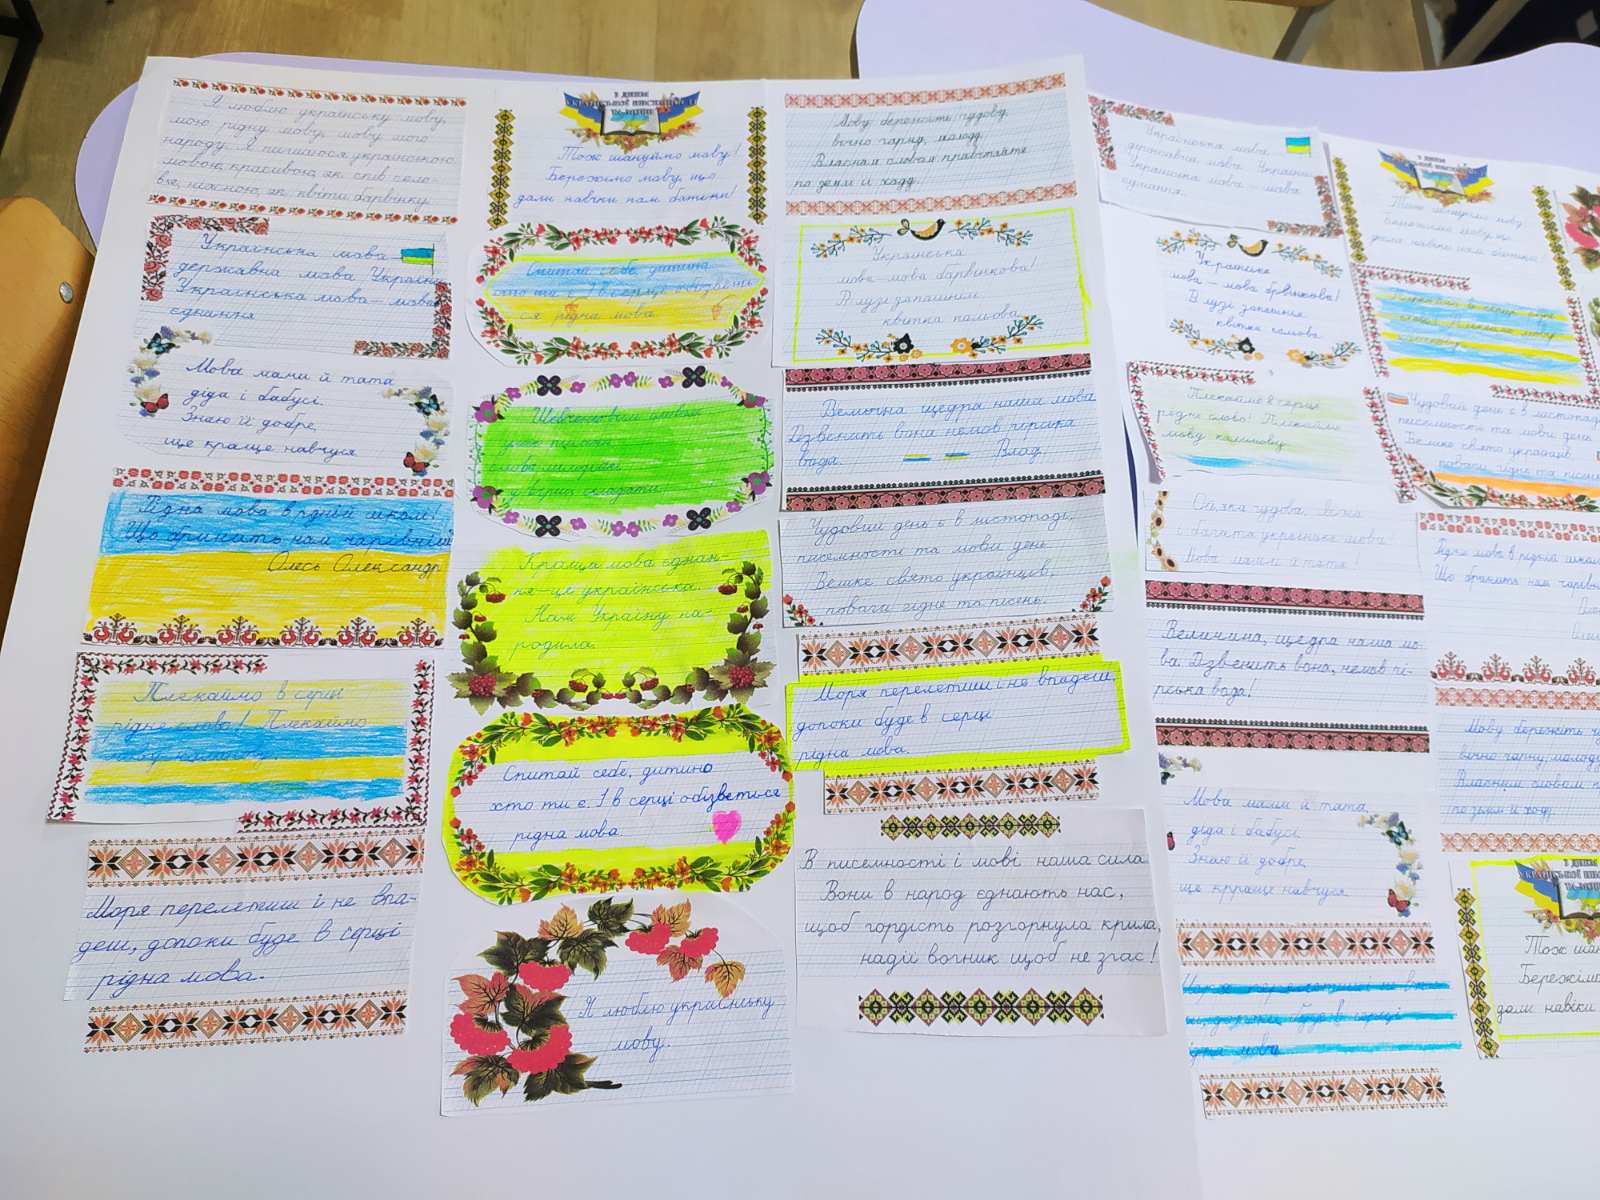 Я люблю українську мову,
мою рідну мову, мову мого
народу. Я пишаюся українською
мовою, красивою, як спів соло-
в'я, ніжною, як квіти барвінку
Українська мова –
державна мова України
Українська мова – мова
єднання
Мова мами й тата,
діда і бабусі.
Знаю її добре,
ще краще навчуся
Рідна мова в рідній школі!
Що бринить нам чарівніш
Олесь Олександр
Плекаймо в серці
рідне слово! Плекаймо
мову
Моря перелетиш і не впа-
деш, допоки буде в серці
рідна мова.
З ДНЕМ
УКРАЇНСЬКОЇ ПИСЕМНОСТІ
ТА МОВИ
Тож шануймо мову!
Бережімо мову, що
дали навіки нам батьки!
Спитай себе, дитино
хто ти є І в серці обізветь
ся рідна мова
Шевченковим
слова мелодій
у вірші складати
Краща мова єднан-
ня – це українська.
Нам Україну на-
родила.
Спитай себе, дитино
хто ти є. І в серці обізветься
рідна мова.
Я люблю українську
мову.
Мову бережіть чудову,
вічно гарну, молоду
Власним словом привітайте
по землі й ходу
Українська
мова – мова барвінкова!
В лузі запашним
квітка пальова
Велична щедра наша мова
Дзвенить вона немов гірська
вода. Влад
Чудовий день є в листопаді,
писемності та мови день
Велике свято українців,
поваги гідне та пісень.
Моря перелетиш і не впадеш,
допоки буде в серці
рідна мова.
В писемності і мові наша сила
Вони в народ єднають нас,
щоб гордість розгорнула крила,
надії вогник щоб не згас!
Українська мова –
державна мова України
Українська мова – мова
єднання
мова – мова
В лузі
квітка
Плекаймо в серці
рідне слово! Плекаймо
мову калинову
Ой, яка чудова,
і багата українська мова!
Мова мами й тата!
Велична, щедра наша мо-
ва. Дзвенить вона, немов гі-
рська вода!
Мова мами й тата,
діда і бабусі
Знаю її добре,
ще крраще навчуся
Моря перелетиш і не
допоки буде в серці
рідна мова
З ДНЕМ
Тож шануймо мову
Бережімо мову, що
дали навіки нам батьки!
Чудовий день є в листопаді
писемності та мови день
Велике свято українців
поваги гідне та
Рідна мова в рідній школі
Що бринить нам
Мову бережіть
вічно гарну, молоду
Власним словом
по землі й ходу.
З ДНЕМ
УКРАЇНСЬКОЇ
Тож
Бережімо
дали навіки